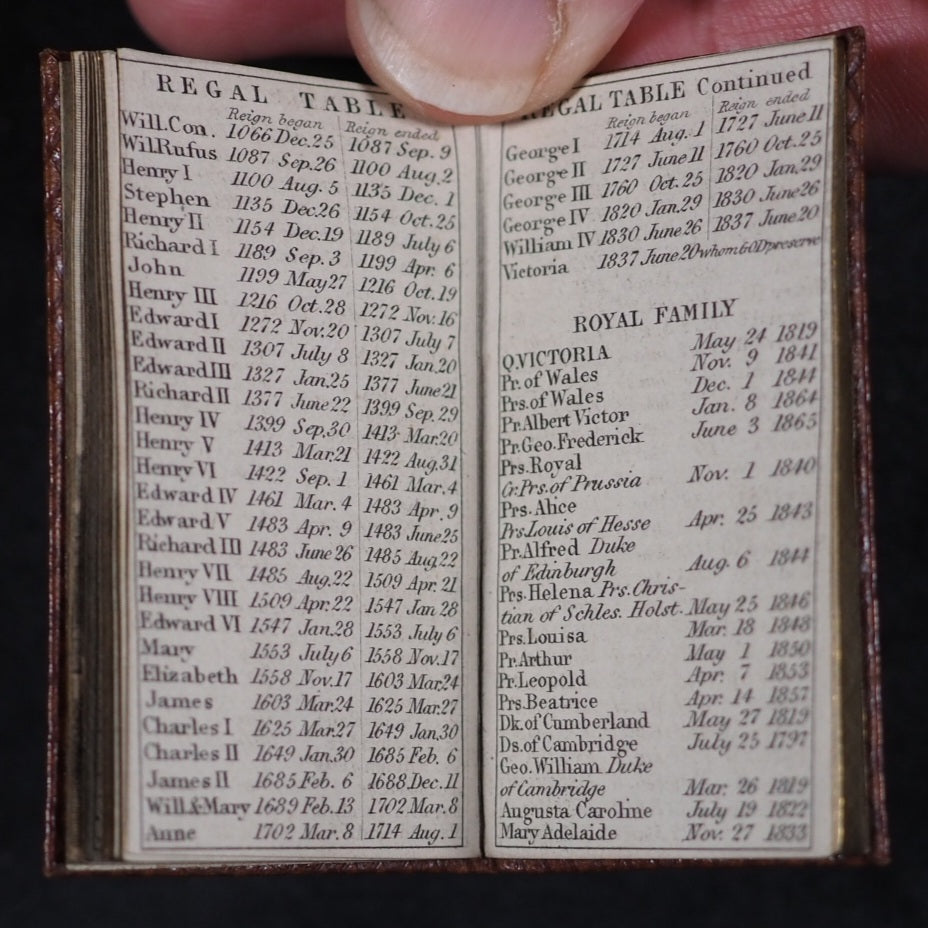 REGAL TABLE
Reign began Reign ended
Will.Con. 1066 Dec.25 1087 Sep. 9
WilRufus 1087 Sep.26 1100 Aug.2
Henry I 1100 Aug. 5 1135 Dec. 1
Stephen 1135 Dec26 1154 Oct.25
Henry II 1154 Dec.19 1189 July 6
Richard I 1189 Sep. 3 1199 Apr. 6
John 1199 May27 1216 Oct.19
Henry III 1216 Oct.28 1272 Nov.16
Edward I 1272 Nov.20 1307 July 7
Edward II 1307 July 8 1327 Jan.20
Edward III 1327 Jan.25 1377 June21
Richard II 1377 June22 1399 Sep.29
Henry IV 1399 Sep.30 1413 Mar.20
Henry V 1413 Mar.21 1422 Aug.31
Henry VI 1422 Sep. 1 1461 Mar.4
Edward IV 1461 Mar. 4 1483 Apr. 9
Edward V 1483 Apr. 9 1483 June25
Richard III 1483 June 26 1485 Aug.22
Henry VII 1485 Aug.22 1509 Apr. 21
Henry VIII 1509 Apr.22 1547 Jan 28
Edward VI 1547 Jan.28 1553 July 6
Mary 1553 July6 1558 Nov.17
Elizabeth 1558 Nov.17 1603 Mar.24
James 1603 Mar.24 1625 Mar.27
Charles I 1625 Mar.27 1649 Jan.30
Charles II 1649 Jan.30 1685 Feb. 6
James II 1685 Feb. 6 1688 Dec.11
Will.&Mary 1689 Feb.13 1702 Mar.8
Anne 1702 Mar. 8 1714 Aug. 1
REGAL TABLE Continued
Reign began Reign ended
George I 1714 Aug. 1 1727 June 11
George II 1727 June 11 1760 Oct.25
George III 1760 Oct.25 1820 Jan.29
George IV 1820 Jan.29 1830 June26
William IV 1830 June 26 1837 June 20
Victoria 1837 June 20 whom GOD preserve
ROYAL FAMILY
Q.VICTORIA May 24 1819
Pr. of Wales Nov. 9 1841
Prs. of Wales Dec. 1 1844
Pr. Albert Victor Jan. 8 1864
Pr. Geo. Frederick June 3 1865
Prs. Royal
Cr. Prs. of Prussia Nov. 1 1840
Prs. Alice
Prs. Louis of Hesse Apr. 25 1843
Pr. Alfred Duke
of Edinburgh Aug. 6 1844
Prs. Helena Prs. Chris-
tian of Schles. Holst. May 25 1846
Prs. Louisa Mar. 18 1848
Pr. Arthur May 1 1850
Pr. Leopold Apr. 7 1853
Prs. Beatrice Apr. 14 1857
Dk. of Cumberland May 27 1819
Ds. of Cambridge July 25 1797
Geo. William Duke
of Cambridge Mar. 26 1819
Augusta Caroline July 19 1822
Mary Adelaide Nov. 27 1833